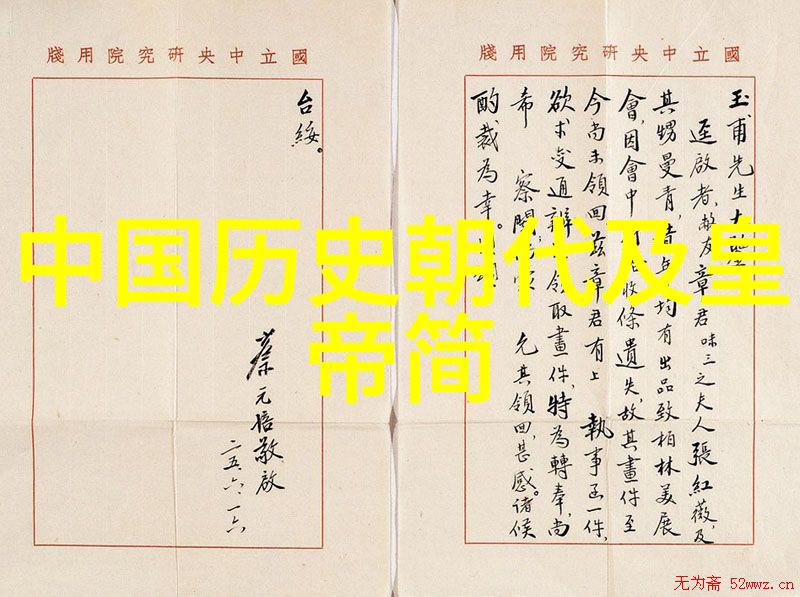 中国历史朝代及皇
帝简
國立中央研究院用牋
玉甫先生大
逕啟者,敝友章君味三之夫人張紅薇,及
其甥曼青,均有出品致柏林美展
會,因會中收條遺失,故其畫件至
今尚未領回茲章君有上 執事函一件,
欲求變通辦領取畫件,特為轉奉,尚
希 察閱, 允其領回,甚感。諸候
酌裁為幸。
國立中央研究院用牋
台綏。
蔡元培敬啟
二五、六、一六
无为斋 52wwz.cn